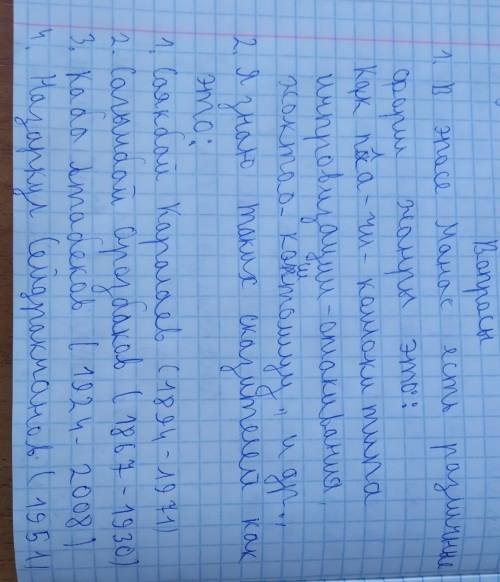 Вопросы
1. В эпосе Манас есть различные
форм жанры это:
Как
импровизации - оплакивания,
и др.,
2. Я знаю таких сказителей как
это:
1. Саякбай Каралаев (1894-1971)
2. Сагымбай Орозбаков (1867-1930)
3. Каба Атабеков (1924-2008)
4. Назаркул Сейдракманов (1951)